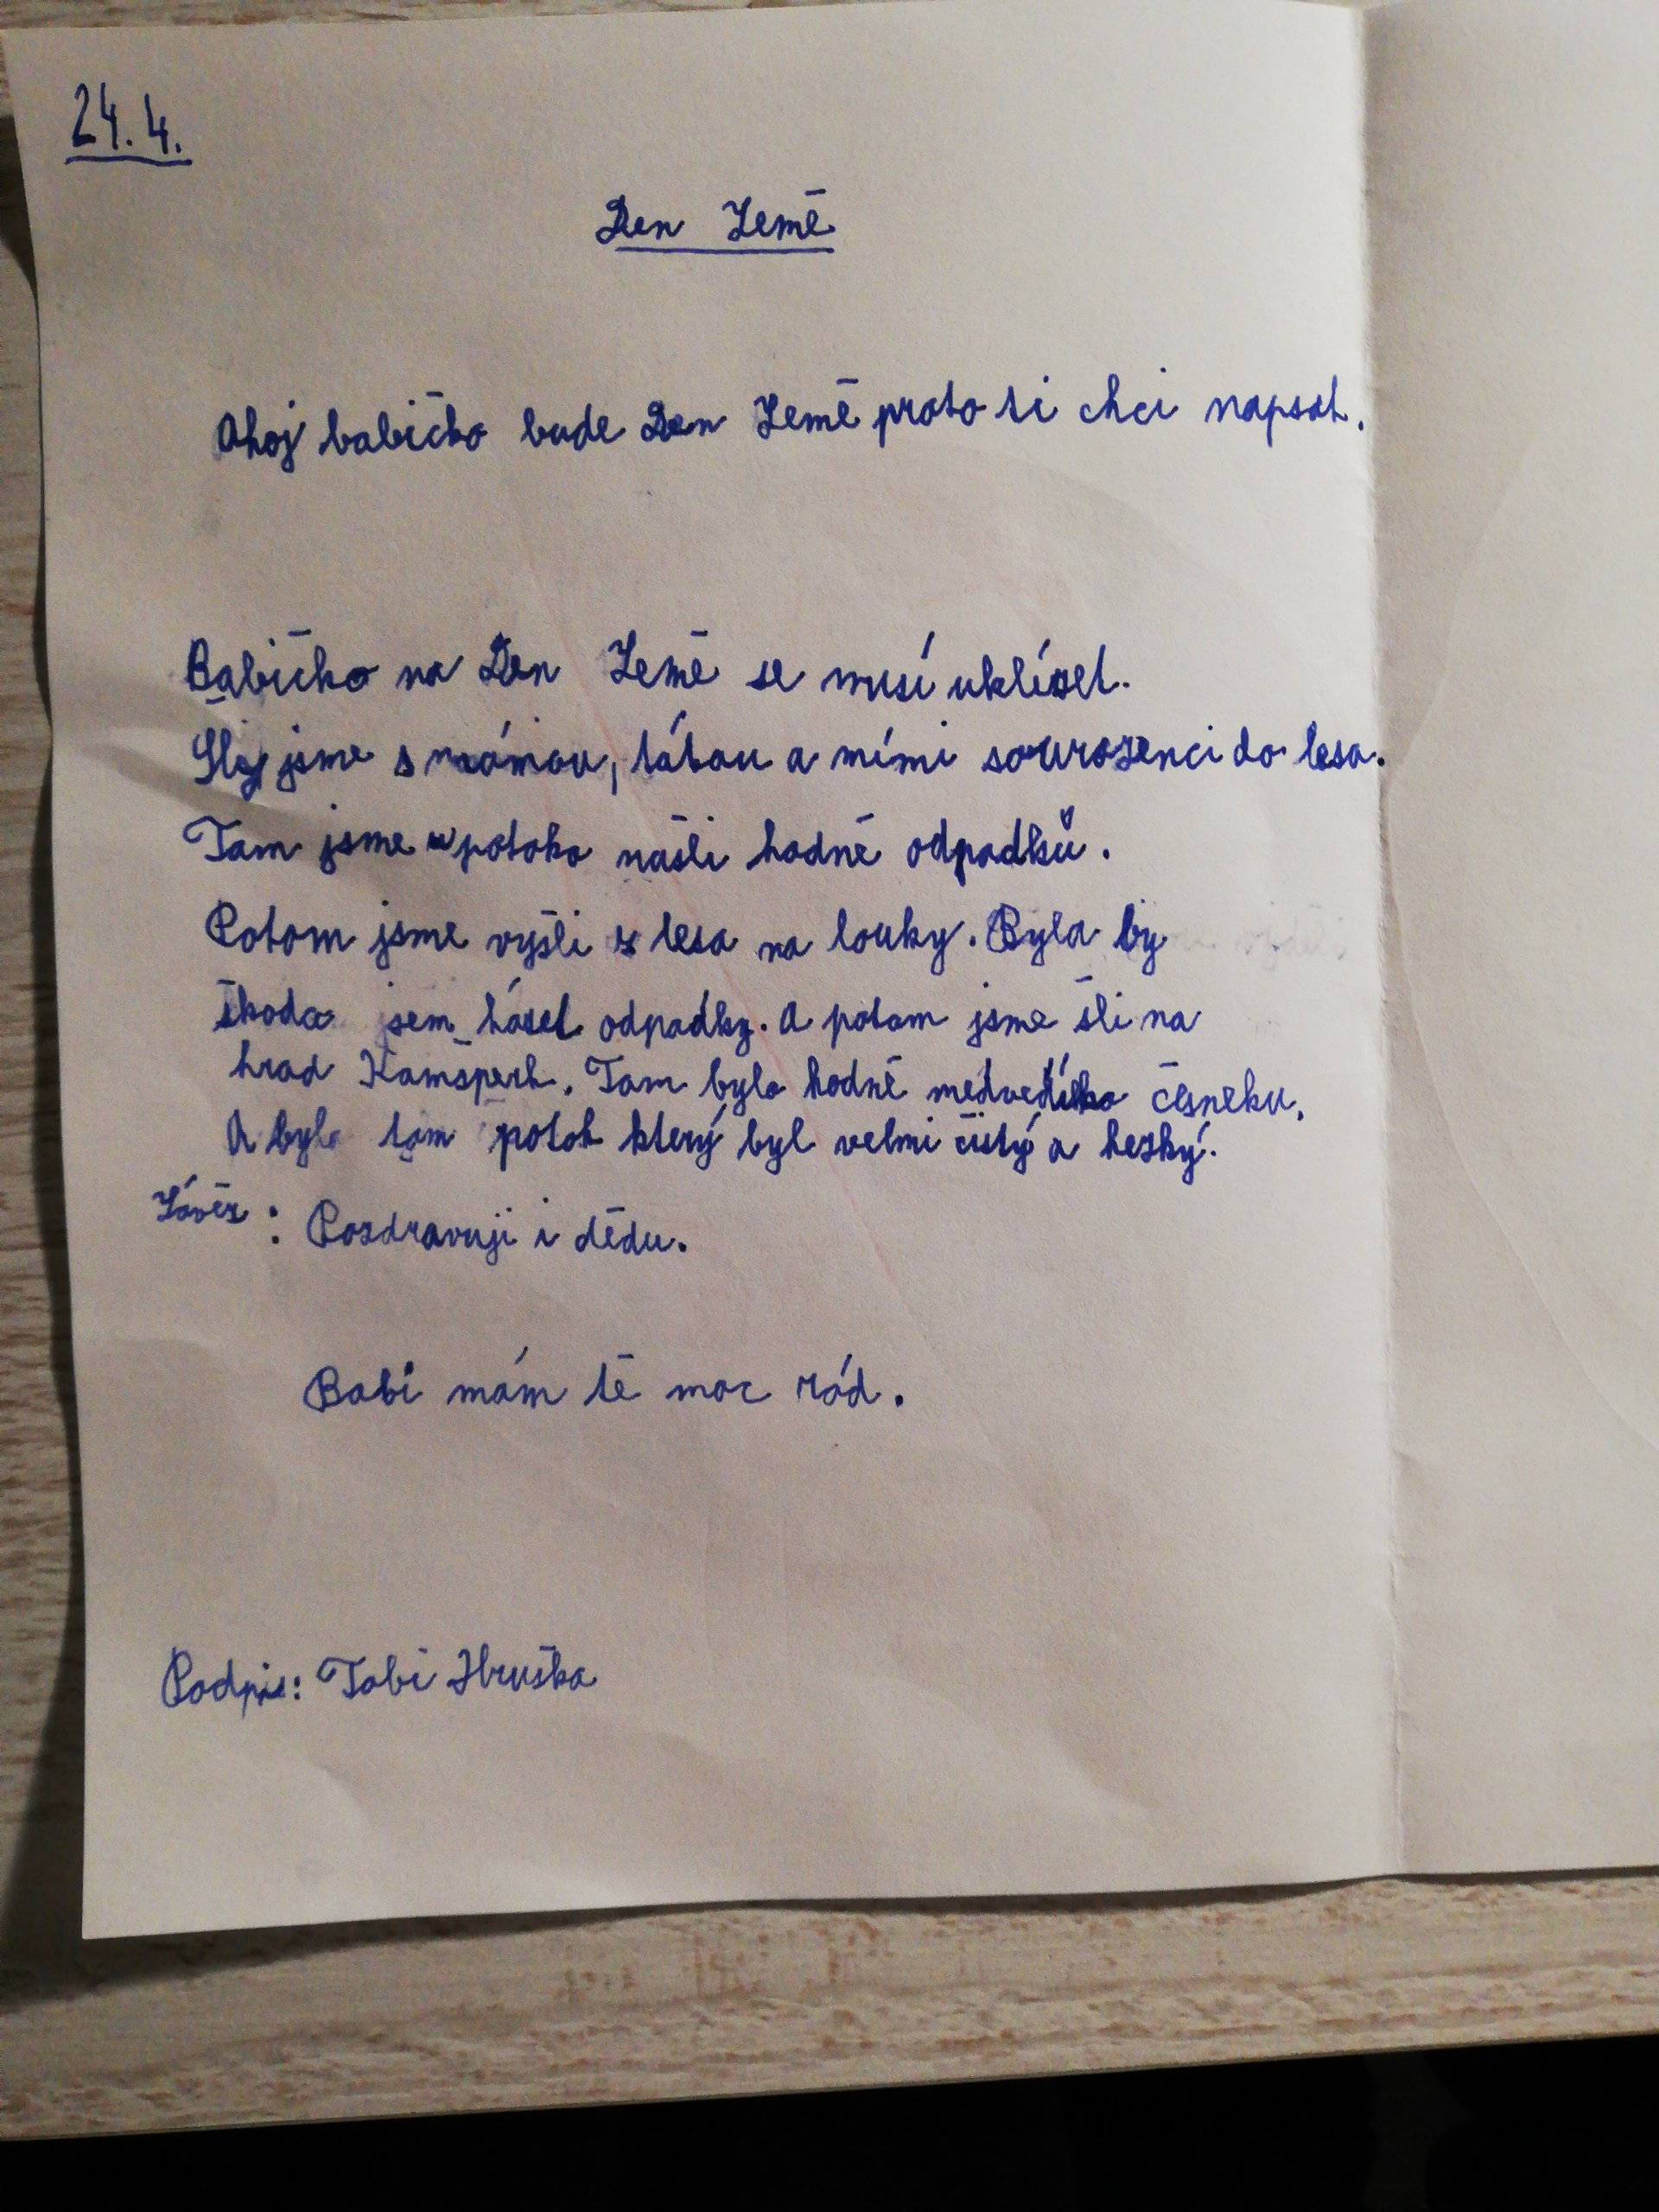 24.4.
Den Země
Ahoj babičko bude Den Země proto ti chci napsat.
Babičko na Den Země se musí uklízet.
Šly jsme s mámou, tátou a mími sourozenci do lesa.
Tam jsme u potoka našli hodně odpadků.
Potom jsme vyšli z lesa na louky. Byla by
škoda sem házet odpadky. A potom jsme šli na
hrad Kamšperk. Tam bylo hodně medvedího česneku.
A byl tam potok který byl velmi čistý a heský.
Závěr: Pozdravuji i dědu.
Babi mám tě moc rád.
Podpis: Tobi Hruška